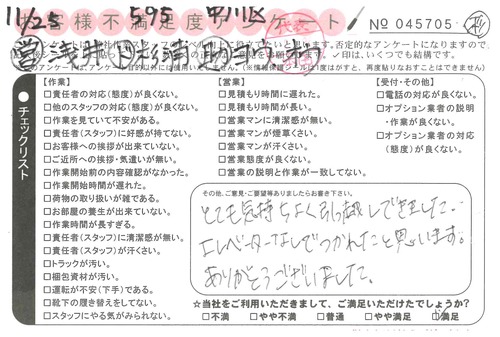 11/25 595
お客様不満足度アンケート
№ 045705
チェックリスト
【作業】
□責任者の対応(態度)が良くない。
□他のスタッフの対応(態度)が良くない。
□作業を見ていて不安がある。
□責任者(スタッフ)に好感が持てない。
□お客様への挨拶が出来ていない。
□ご近所への挨拶・気遣いが無い。
□作業開始前の内容確認がなかった。
□作業開始時間が遅れた。
□荷物の取り扱いが雑である。
□お部屋の養生が出来ていない。
□作業時間が長すぎる。
□責任者(スタッフ)に清潔感が無い。
□責任者(スタッフ)が汗くさい。
□トラックが汚い。
□梱包資材が汚い。
□運転が不安(下手)である。
□靴下の履き替えをしてない。
□スタッフにやる気がみられない。
【営業】
□見積もり時間に遅れた。
□見積もり時間が長い。
□営業マンに清潔感が無い。
□営業マンが煙草くさい。
□営業マンが汗くさい。
□営業態度が良くない。
□営業の説明と作業が一致してない。
【受付・その他】
□電話の対応が良くない。
□オプション業者の説明
・作業が良くない。
□オプション業者の対応
(態度)が良くない。
その他、ご意見・ご要望等ありましたらお書き下さい。
とても気持ちよく引っ越しできました。
エレベーターなしでつかれたと思います。
ありがとうございました。
☆当社をご利用いただきまして、ご満足いただけたでしょうか?
□不満 □やや不満 □普通 □やや満足 □満足